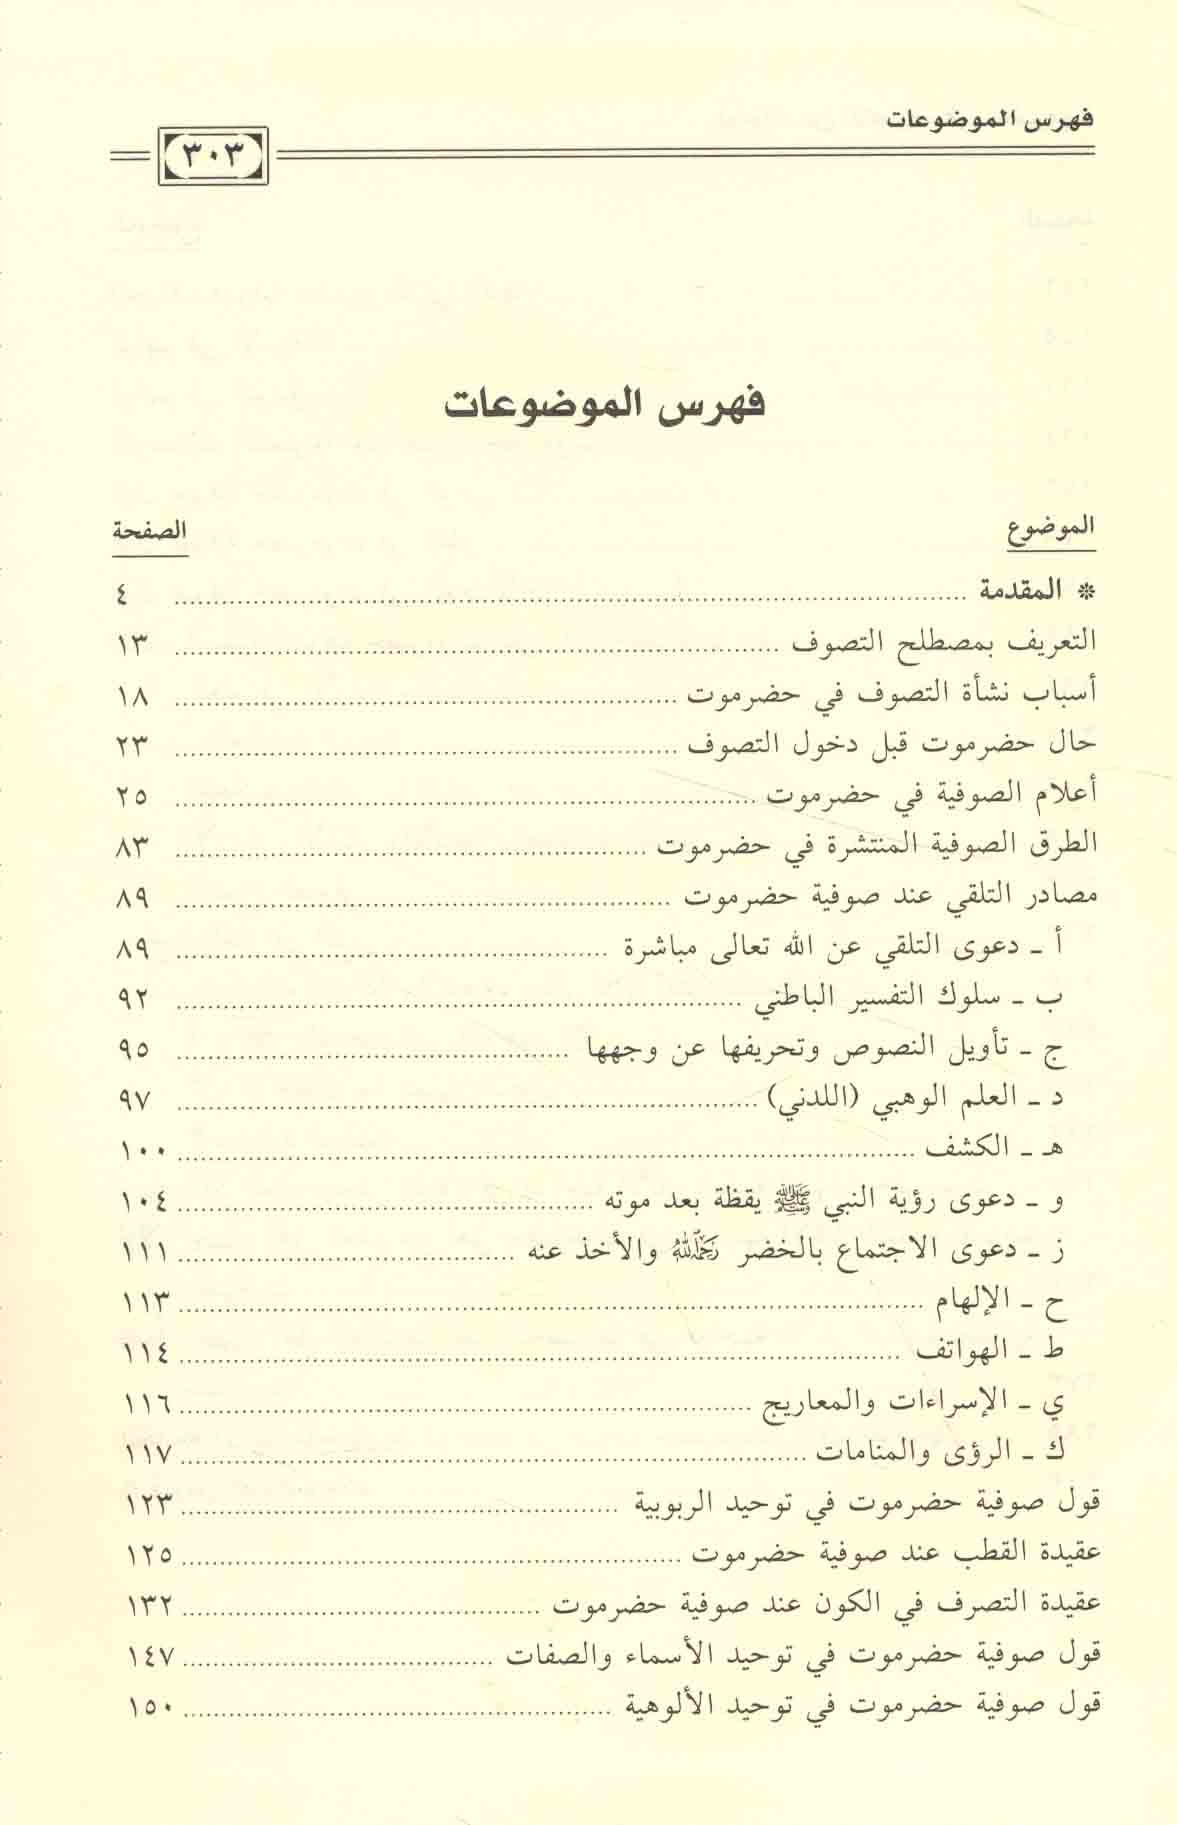 فهرس الموضوعات
٣٠٣
فهرس الموضوعات
الموضوع الصفحة
* المقدمة ........ ٤
التعريف بمصطلح التصوف ........ ١٣
أسباب نشأة التصوف في حضرموت ........ ١٨
حال حضرموت قبل دخول التصوف ........ ٢٣
أعلام الصوفية في حضرموت ........ ٢٥
الطرق الصوفية المنتشرة في حضرموت ........ ٨٣
مصادر التلقي عند صوفية حضرموت ........ ٨٩
أ ـ دعوى التلقي عن الله تعالى مباشرة ........ ٨٩
ب ـ سلوك التفسير الباطني ........ ٩٢
ج ـ تأويل النصوص وتحريفها عن وجهها ........ ٩٥
د ـ العلم الوهبي (اللدني) ........ ٩٧
هـ ـ الكشف ........ ١٠٠
و ـ دعوى رؤية النبي ﷺ يقظة بعد موته ........ ١٠٤
ز ـ دعوى الاجتماع بالخضر رحمه الله والأخذ عنه ........ ١١١
ح ـ الإلهام ........ ١١٣
ط ـ الهواتف ........ ١١٤
ي ـ الإسراءات والمعاريج ........ ١١٦
ك ـ الرؤى والمنامات ........ ١١٧
قول صوفية حضرموت في توحيد الربوبية ........ ١٢٣
عقيدة القطب عند صوفية حضرموت ........ ١٢٥
عقيدة التصرف في الكون عند صوفية حضرموت ........ ١٣٢
قول صوفية حضرموت في توحيد الأسماء والصفات ........ ١٤٧
قول صوفية حضرموت في توحيد الألوهية ........ ١٥٠